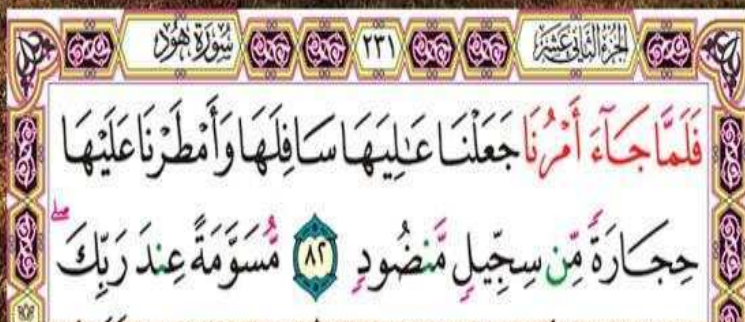 الجزء الثاني عشر ٢٣١ سورة هود
فَلَمَّا جَآءَ أَمْرُنَا جَعَلْنَا عَٰلِيَهَا سَافِلَهَا وَأَمْطَرْنَا عَلَيْهَا
حِجَارَةً مِّن سِجِّيلٍ مَّنضُودٍ ٨٢ مُّسَوَّمَةً عِندَ رَبِّكَ ۖ